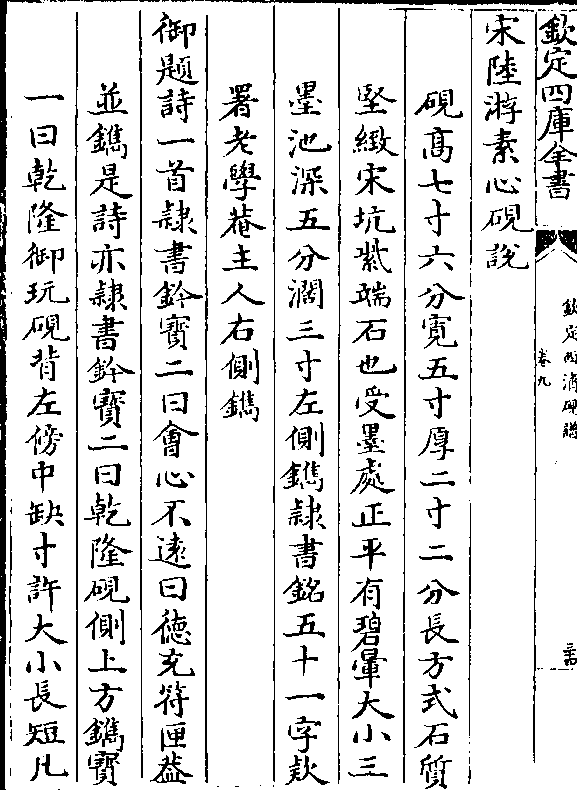 欽定四庫全書
欽定西清硯譜
卷九
宋陸游素心硯說
硯高七寸六分寛五寸厚二寸二分長方式石質
堅緻宋坑紫端石也受墨處正平有碧暈大小三
墨池深五分濶三寸左側鐫隷書銘五十一字款
署老學菴主人右側鐫
御題詩一首隷書鈐寳二曰㑹心不逺曰徳充符匣葢
並鐫是詩亦隷書鈐寳二曰乾隆硯側上方鐫寳
一曰乾隆御玩硯背左傍中缺寸許大小長短凡